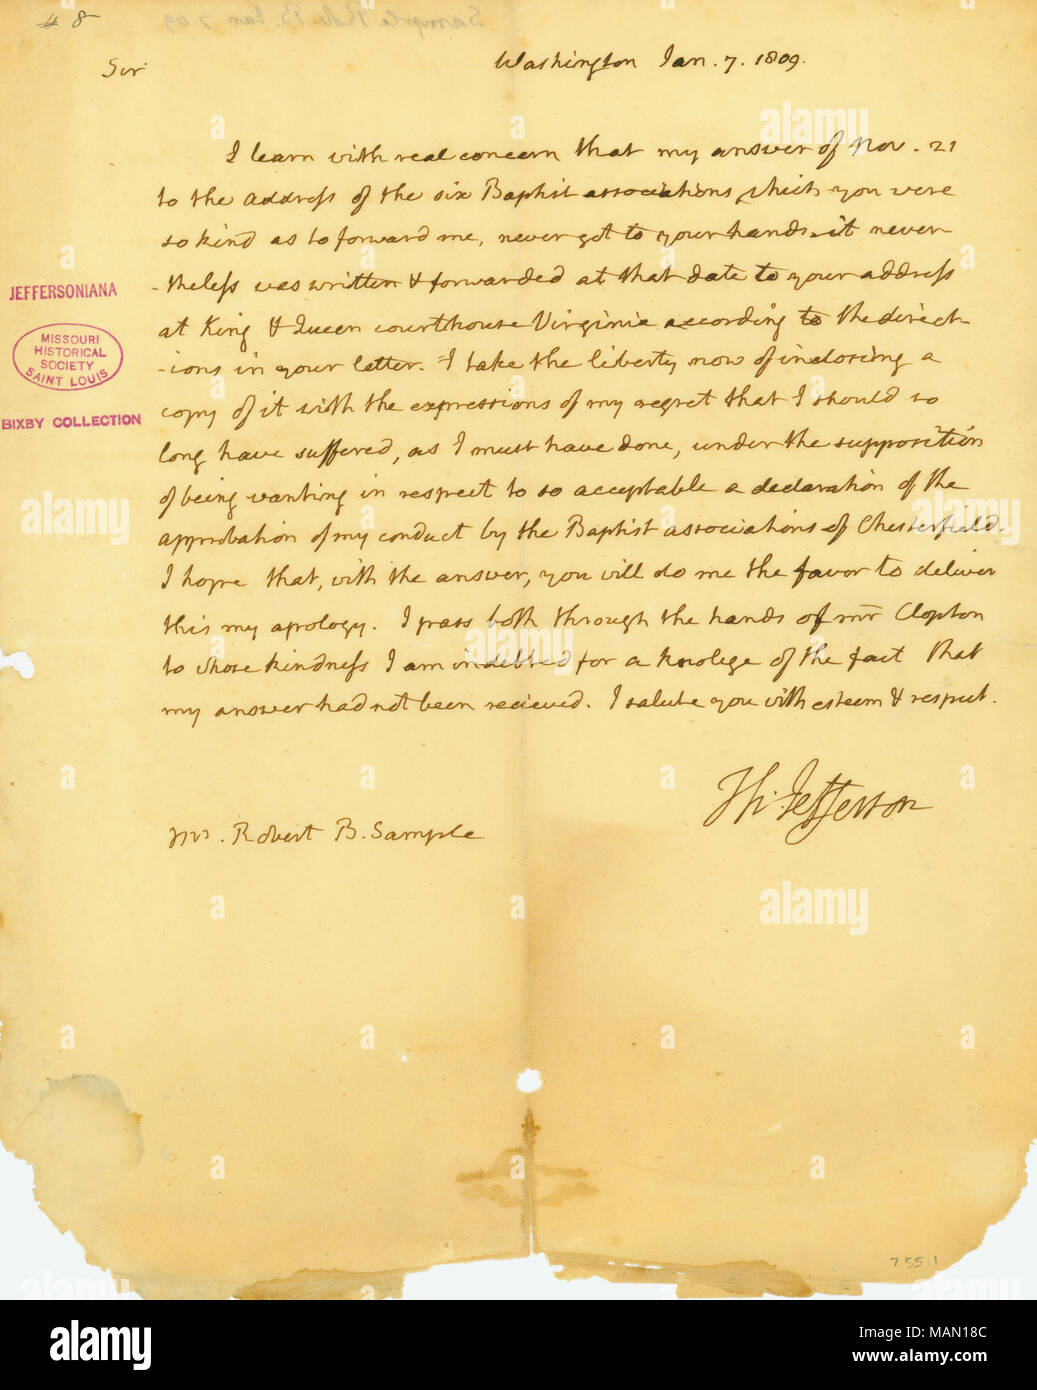 # 8
Sir
Washington Jan. 7. 1809.
I learn with real concern that my answer of Nov. 21
to the Address of the six Baptist associations, which you were
so kind as to forward me, never got to your hands. it never-
-theless was written & forwarded at that date to your address
at King & Queen courthouse Virginia according to the direct-
-ions in your letter. I take the liberty now of inclosing a
copy of it with the expressions of my regret that I should so
long have suffered, as I must have done, under the supposition
of being wanting in respect to so acceptable a declaration of the
approbation of my conduct by the Baptist associations of Chesterfield.
I hope that, with the answer, you will do me the favor to deliver
this my apology. I pass both through the hands of mr Clopton
to whose kindness I am indebted for a knolege of the fact that
my answer had not been recieved. I salute you with esteem & respect.
Th: Jefferson
Mr. Robert B. Sample
JEFFERSONIANA
MISSOURI
HISTORICAL
SOCIETY
SAINT LOUIS
BIXBY COLLECTION
755.1
alamy
Image ID: MAN18C
www.alamy.com